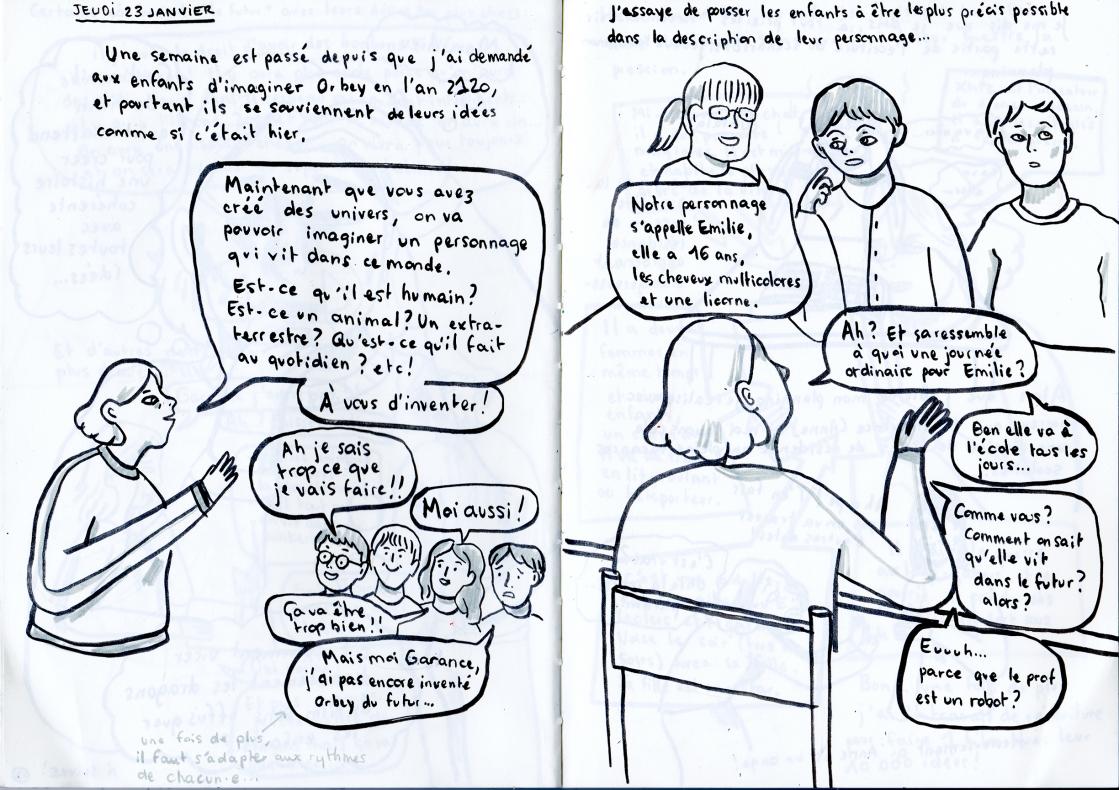 JEUDI 23 JANVIER
Une semaine est passé depuis que j'ai demandé
aux enfants d'imaginer Orbey en l'an 2120,
et pourtant ils se souviennent de leurs idées
comme si c'était hier.
Maintenant que vous avez
créé des univers, on va
pouvoir imaginer un personnage
qui vit dans ce monde.
Est-ce qu'il est humain?
Est-ce un animal? Un extra-
terrestre? Qu'est-ce qu'il fait
au quotidien? etc!
À vous d'inventer!
Ah je sais
trop ce que
je vais faire!!
Moi aussi!
Ça va être
trop bien!!
Mais moi Garance,
j'ai pas encore inventé
Orbey du futur...
une fois de plus,
il faut s'adapter aux rythmes
de chacun·e...
J'essaye de pousser les enfants à être les plus précis possible
dans la description de leur personnage...
Notre personnage
s'appelle Emilie,
elle a 16 ans,
les cheveux multicolores
et une licorne.
Ah? Et sa ressemble
à quoi une journée
ordinaire pour Emilie?
Ben elle va à
l'école tous les
jours...
Comme vous?
Comment on sait
qu'elle vit
dans le futur?
alors?
Euuuh...
parce que le prof
est un robot?